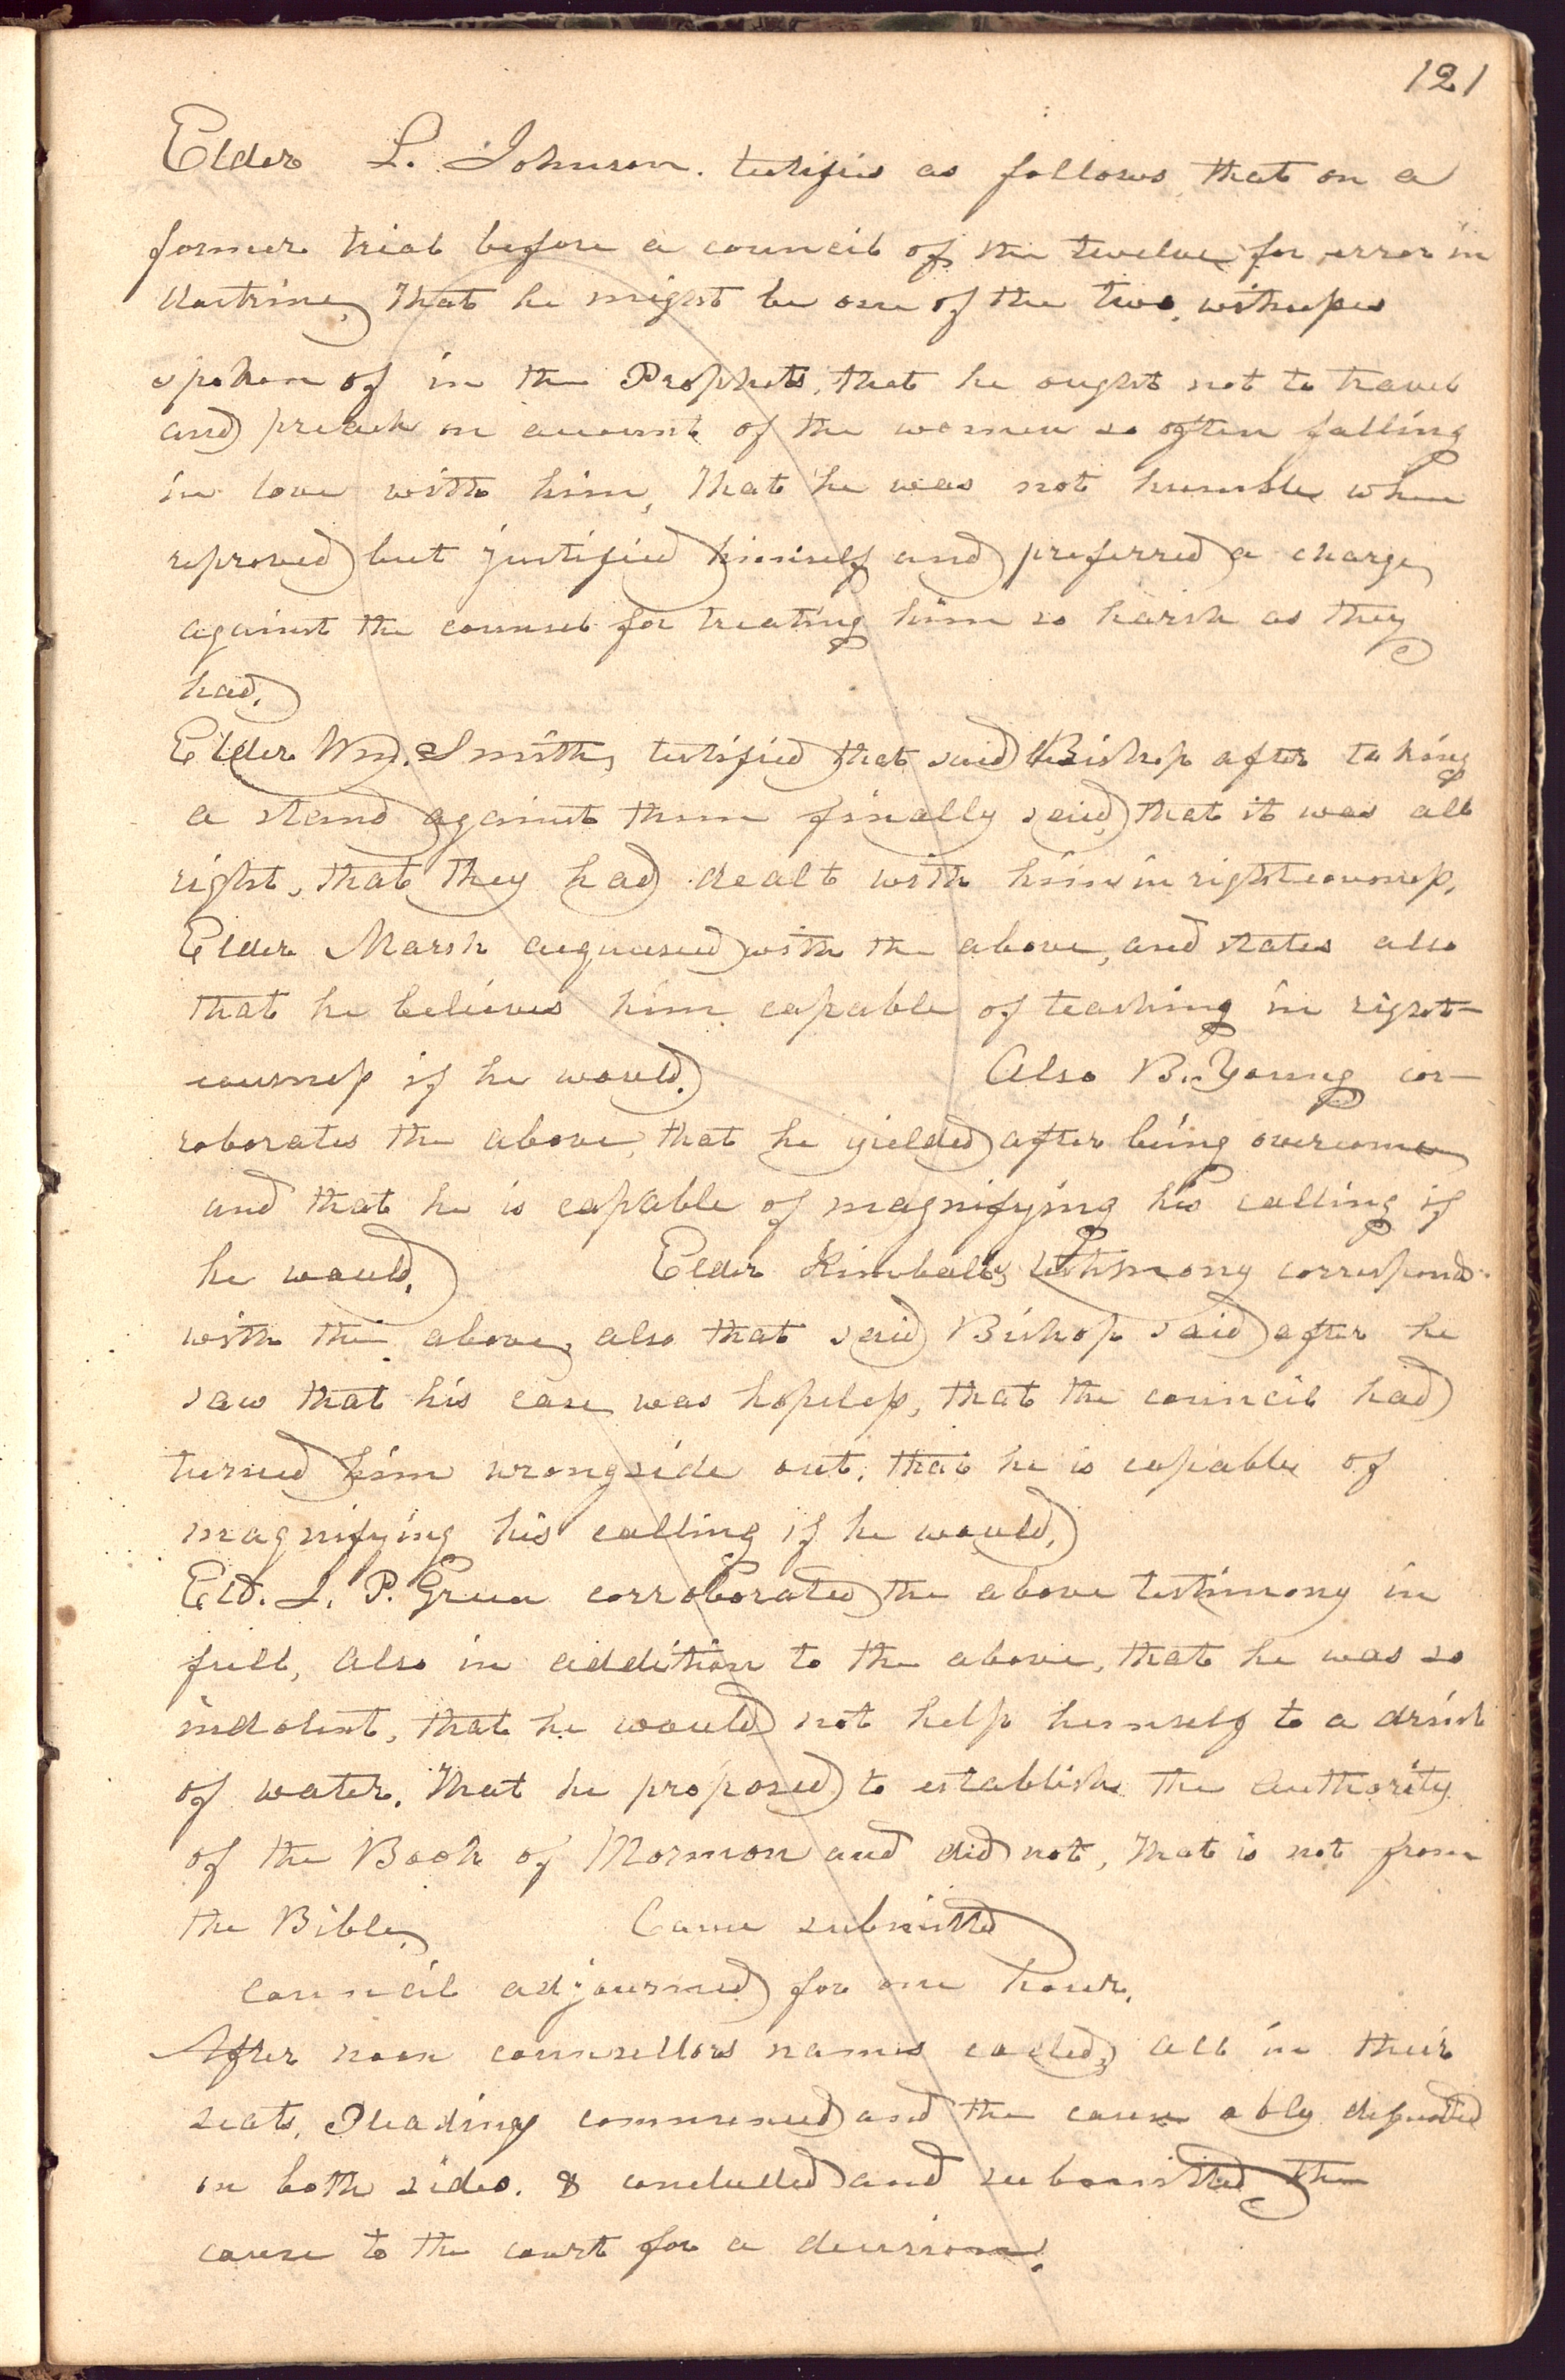 121
Elder L. Johnson. testifies as follows, that on a
former trial before a council of the twelve for error in
doctrine, That he might be one of the two witnesses
spoken of in the Prophets, that he ought not to travel
and preach on account of the women so often falling
in love with him, That he was not humble when
reproved but justified himself and preferred a charge
against the counsel for treating him so harsh as they
had.
Elder Wm. Smith, testified that said Bishop after taking
a stand against them finally said, that it was all
right, that they had dealt with him in righteousness,
Elder Marsh acquiesed with the above, and states also
that he believes him capable of teaching in right-
eousness if he would. Also B. Young cor-
roborates the above, that he yielded after being overcome
and that he is capable of magnifying his calling if
he would. Elder Kimball's testimony correspond
with the above, also that said Bishop said after he
saw that his case was hopeless, that the council had
turned him wrongside out, that he is capable of
magnifying his calling if he would,
Eld. J. P. Green corroborated the above testimony in
full, also in addition to the above, that he was so
indolent, that he would not help himself to a drink
of water. That he proposed to establish the authority
of the Book of Mormon and did not, That is not from
the Bible. Cause submitted
Council adjourned for one hour.
After noon counsellors names called, all in their
seats, Pleading commenced and the cause ably defended
on both sides. & concluded and submitted the
cause to the court for a decision.